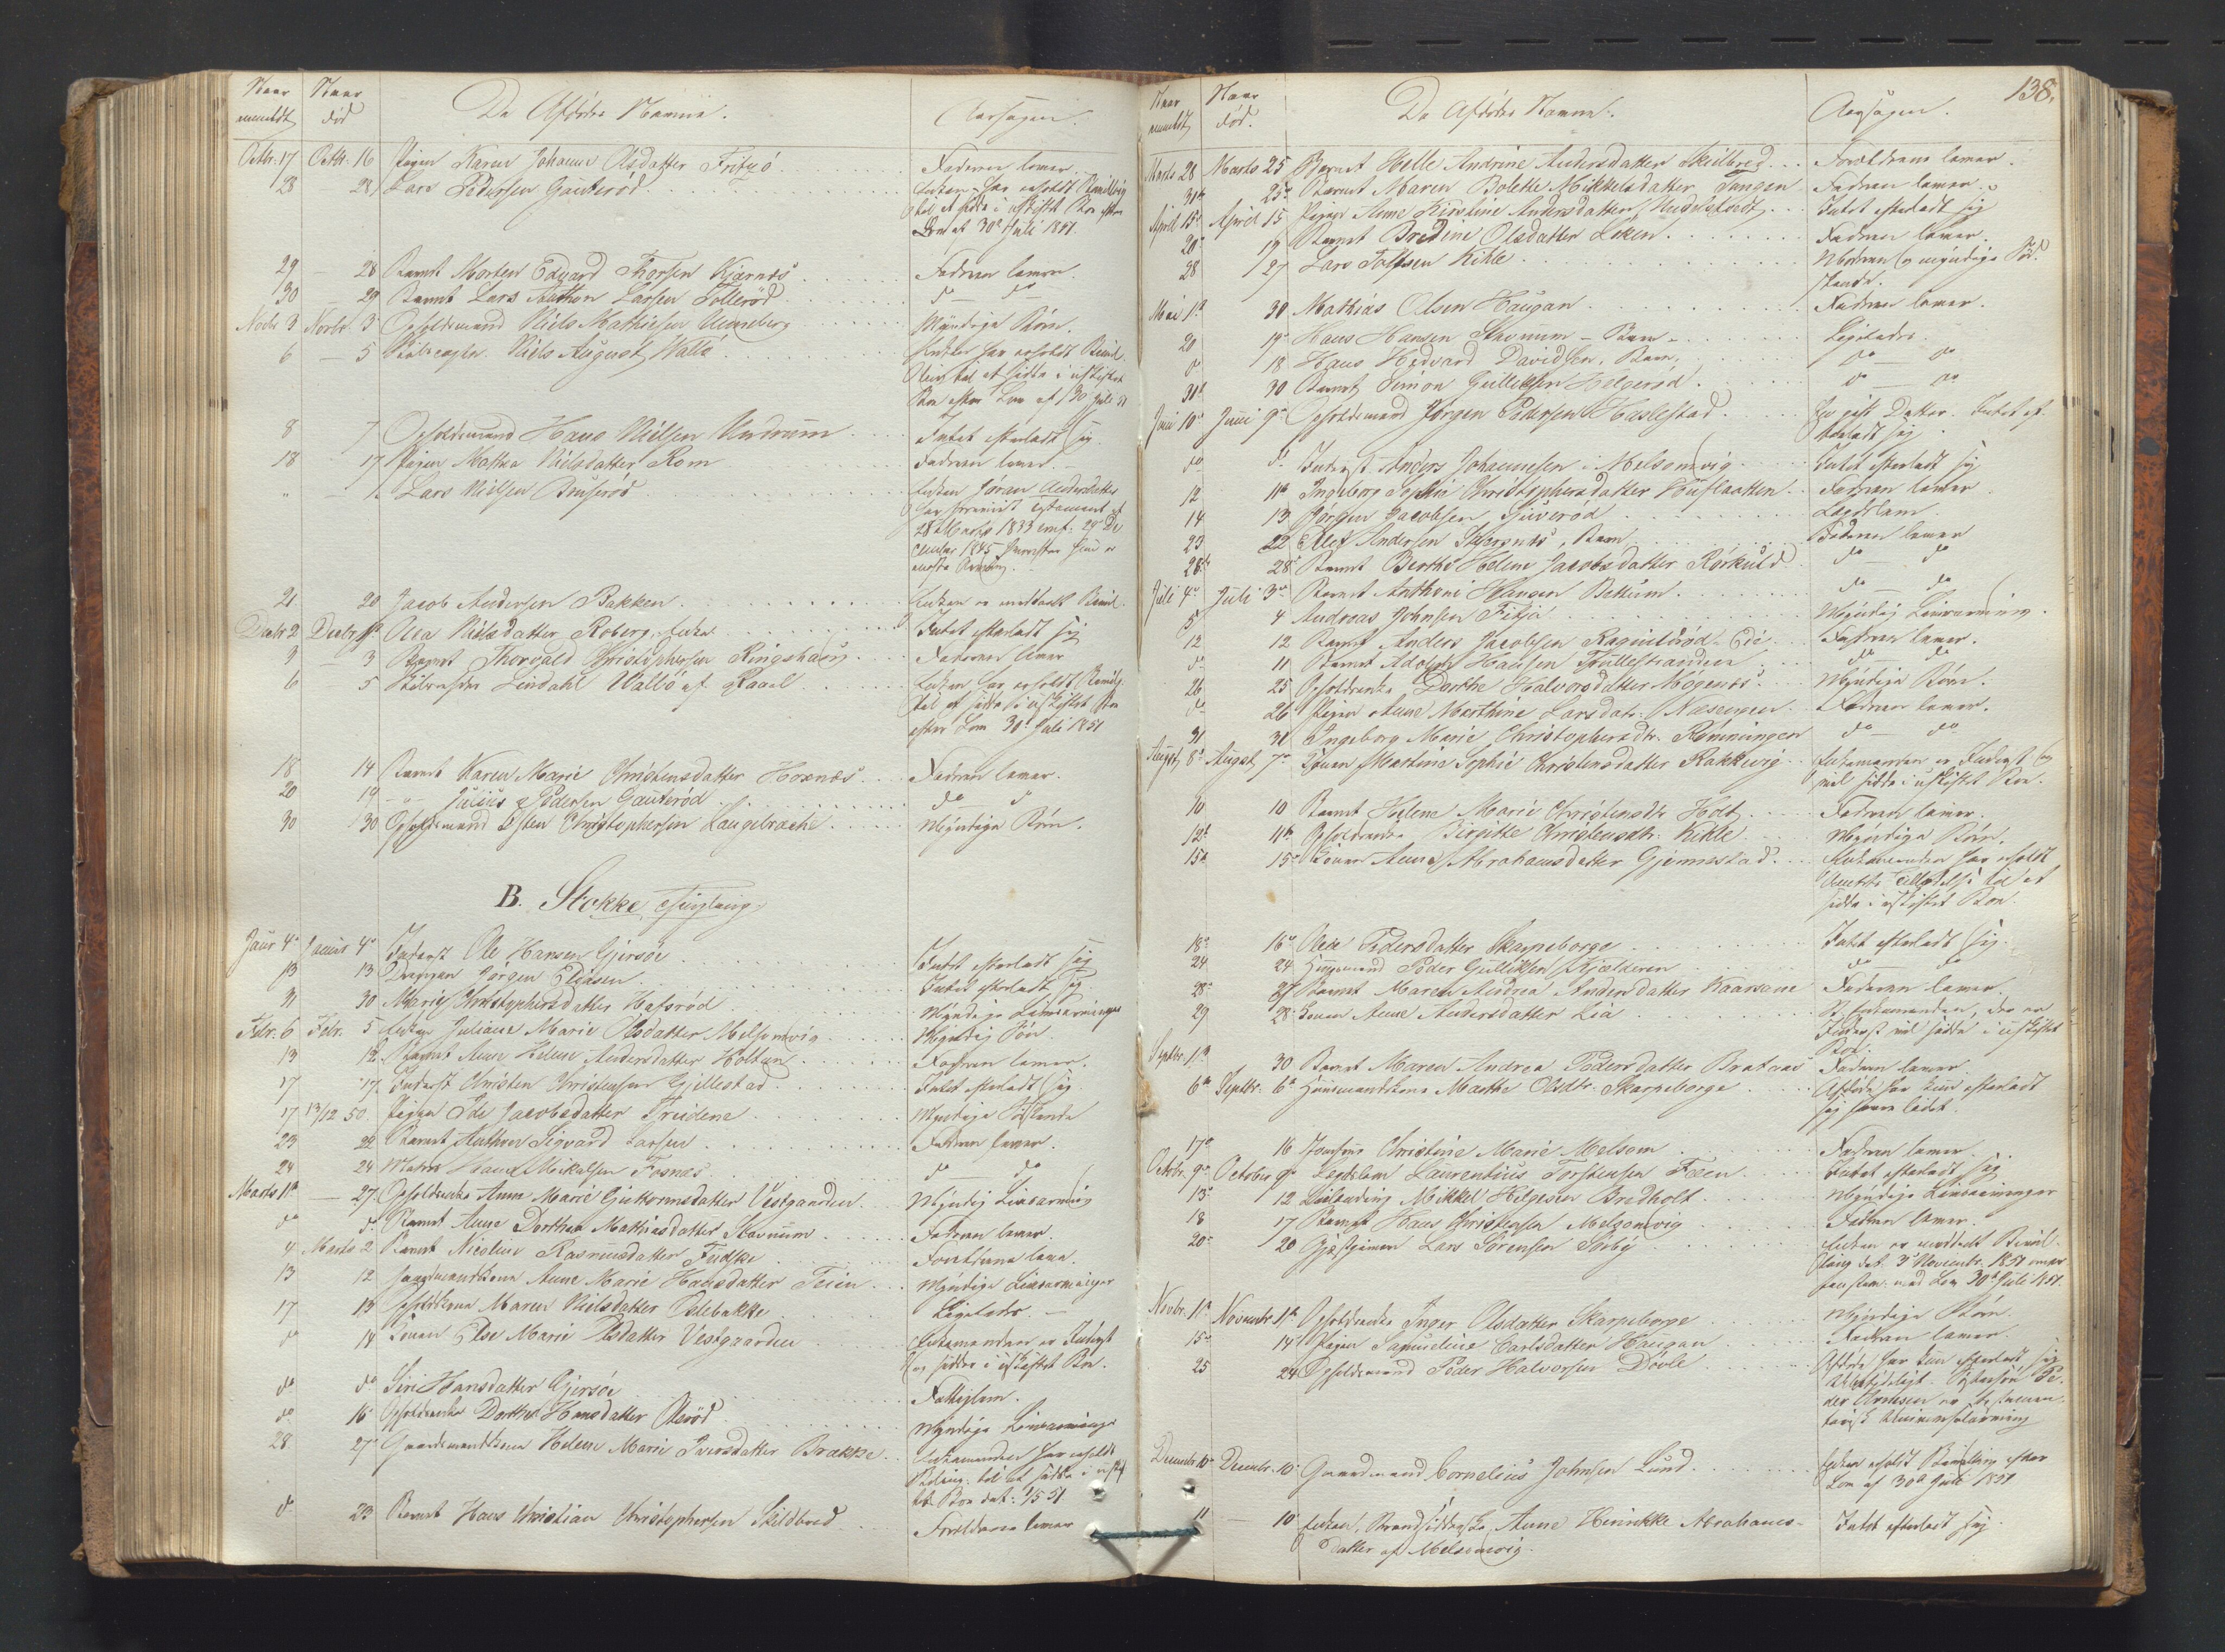 Naar anmeldt Naar død De Afdødes Navne. Aarsagen.
Octbr. 17 Octbr. 16 Pigen Karen Johanne Olsdatter Fritzö Faderen lever.
28 28 Lars Pedersen Gauterød Enken har erholdt Bevilling
til at sidde i uskiftet Bo efter
Lov af 30te Juli 1851.
29 — 28 Barnet Morten Edvard Thorsen Kjærnæs Faderen lever.
30 — 29 Barnet Lars Anthon Larsen Tollerød do — do
Novbr. 3 Novbr. 3 Opholdsmand Niels Mathisen Unneberg Myndige Børn.
6 — 5 Niels August Vallø Enken har erholdt Bevil-
ling til at sidde i uskiftet
Bo efter Lov af 30 Juli 51
8 7 Opholdsmand Hans Nielsen Undrum Intet efterladt sig.
18 — 17 Pigen Mathea Nielsdatter Rom Faderen lever.
" — " Lars Nielsen Bruserød Enken Jøran Andersdatter
har Testament af
28 Marts 1833 conf. 29 De-
cember 1845 hvorefter hun er
eneste Arving.
21 20 Jacob Andersen Bakken Enken er meddeelt Bevil.
Decbr 2 Decbr 1ste Olea Nielsdatter Roberg, Enke Intet efterladt sig
3 — 3 Barnet Thorvald Christophersen Ringshaug Faderen lever
6 5 Lindahl Vallö af Enken har erholdt Bevilg.
til at sidde i uskiftet Bo
efter Lov 30te Juli 1851
18 14 Barnet Karen Marie Christensdatter Hoxnæs Faderen lever.
20 19 — " — Julius Pedersen Gauterød do do
30 30 Opholdsmand Osten Christophersen Haugebrække Myndige Børn.
B. Stokke Thinglaug.
Janr 4de Januar 4de Inderst Ole Hansen Gjersøe Intet efterladt sig
13 13 Jorgen Eliasen Intet efterladt sig.
31 30 Marie Christophersdatter Hafsrød Myndige Livsarvinger
Febr. 6 Febr. 5 Enke Juliane Marie Olsdatter Melsomvig Myndig Søn.
13 12 Barnet Anne Helene Andersdatter Holtan Faderen lever.
17 17 Inderst Christen Christensen Gjillestad Intet efterladt sig.
17 13/12 50. Pigen Ide Jacobsdatter Myndige Søskende
23 22 Barnet Anthon Sigvard Larsen Faderen lever.
24 24 Hans Mikalsen Fosnæs do do
Marts 1ste — 27. Opholdsenke Anne Marie Guttormsdatter Vestgaarden Myndig Livsarving
do do Barnet Anne Dorthea Mathiasdatter Stavnum Faderen lever.
4 Marts 2 Barnet Nicoline Rasmusdatter Fudske Forældrene leve.
13 12 Gaardmandskone Anne Marie Hansdatter Feien Myndige Livsarvinger
17 13 Opholdskone Maren Nielsdatter Delebakke Ligeledes. —
do 14 Konen Else Marie Olsdatter Vestgaarden Enkemanden er Inderst
og sidder i uskiftet Bo.
do do Siri Hansdatter Gjersøe Fattiglem.
do 16 Opholdsenke Dorthe Hansdatter Olerød Myndige Livsarvinger
28 27 Gaardmandskone Helene Marie Iversdatter Brække Enkemanden har erholdt
Beving. til at sidde i uskif-
tet Bo dat: 1/5 51
do 23 Barnet Hans Christian Christophersen Skildbred Forældrene lever
138.
Naar anmeldt Naar død. De Afdødes Navne. Aarsagen.
Marts 28 Marts 25 Barnet Helle Andrine Andersdatter Skilbred Forældrene lever.
31te 25de Barnet Maren Bolette Mikkelsdatter Tangen Faderen lever.
April 15de April 15 Pigen Anne Kirstine Andersdatter Intet efterladt sig
20de 19 Barnet Bredine Olsdatter Løken Faderen lever.
28 27 Lars Tolfsen Kikle Moderen og myndige Sød-
skende.
Mai 1ste 30 Mathias Olsen Haugan Faderen lever.
20 19de Hans Hansen Stavnum — Barn Ligeledes.
do 18 Hans Hedvard Davidsen, Barn do — do
31te 30 Barnet Simon Gulliksen Helgerød do — do
Juni 10de Juni 9de Opholdsmand Jørgen Pedersen Haslestad En gift Datter. Intet ef-
terladt sig
do do Inderst Anders Johannesen i Melsomvig Intet efterladt sig
12 11te Ingeborg Sophie Christophersdatter Huflaatten Faderen lever
14 13 Jørgen Jacobsen Guverød Lægdslem.
23 22 Olef Andersen Barn Faderen lever
28de 28de Barnet Berthe Helene Jacobsdatter Rørkuld do do
Juli 4de Juli 3de Barnet Anthoni Hansen Bettum do do
5 4 Andreas Johnsen Fitja Myndig Livsarving.
12 12 Barnet Anders Jacobsen Ragnildrød Eie Faderen lever.
do 11 Barnet Adolph Hansen Trullestranden do do
26 25 Opholdsenke Dorthe Halvorsdatter Mögenæs Myndige Børn.
do 26 Pigen Anne Marthine Larsdatr. Næsengen Faderen lever.
31 31 Ingeborg Marie Christophersdtr. Rønningen do do
August 8de August 7de Konen Martine Sophie Christensdatter Rakkevig Enkemanden er Inderst og
vil sidde i uskiftet Bo.
10 10 Barnet Helene Marie Christensdtr Holt Faderen lever.
12te 11te Opholdsenke Birgitte Christensdtr. Kikle Myndige Børn.
15de 15de Konen Anne Abrahamsdatter Gjennestad Enkemanden har erholdt
Tilladelse til at
sidde i uskiftet Bo.
18de 16de Olea Pedersdatter Skarpeborge Intet efterladt sig.
24 24 Huusmand Peder Gulliksen Kjælderen do do
28de 27 Barnet Maren Andrea Andersdatter Kaarsane Faderen lever.
29 28 Konen Anne Andersdatter Lia Enkemanden, der er
Inderst vil sidde i uskiftet
Bo.
Septbr. 1ste 30 Barnet Maren Andrea Pedersdatter Brataas Faderen lever.
6te Septbr. 6te Huusmandskone Marthe Olsdtr. Skarpeborge Afdøde har kun efterladt
sig saare lidet.
17de 16 Christine Marie Melsom Faderen lever.
Octbr. 9de October 9de Lægdslem Laurentius Torstensen Feen Intet efterladt sig
13de 12 Mikkel Helgesen Bredholt Myndige Livsarvinger
18 17 Barnet Hans Christensen Melsomvig Faderen lever.
20de 20 Gjæstgiver Lars Sørensen Sørby Enken er meddeelt Bevil-
ling dat. 3de Novembr. 1851 over-
eensstem. med Lov 30te Juli 1851.
Novbr. 1ste Novembr 1ste Opholdsenke Inger Olsdatter Skarpeborge Myndige Børn.
15de 14 Pigen Samueline Carlsdatter Haugan Faderen lever.
25 24 Opholdsmand Peder Halvorsen Dövle Afdøde har kun efterladt sig
Ubetydeligt. Søstersøn Pe-
der Arnesen er testamen-
tarisk Universalarving
Decembr. 10de Decembr. 10de Gaardmand Cornelius Johnsen Lund Enken erholdt Bevilling efter
Lov af 30te Juli 1851
11 — 10 Enken Anne Hinrikke Abrahams-
datter af Melsomvig. Intet efterladt sig.